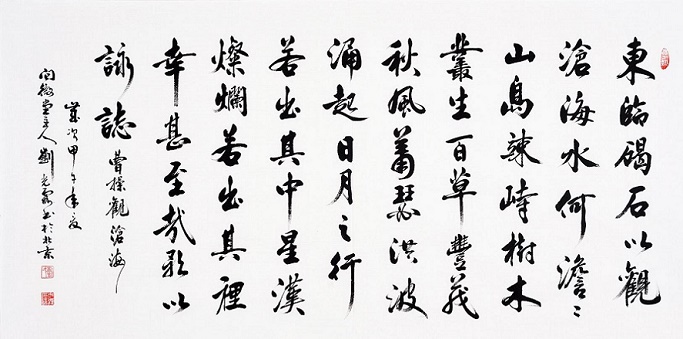 東臨碣石以觀
滄海水何澹〻
山島竦峙樹木
叢生百草豐茂
秋風蕭瑟洪波
涌起日月之行
若出其中星漢
燦爛若出其裡
幸甚至哉歌以
詠誌 曹操觀滄海
歲次甲午年夏
主人劉光書於北京